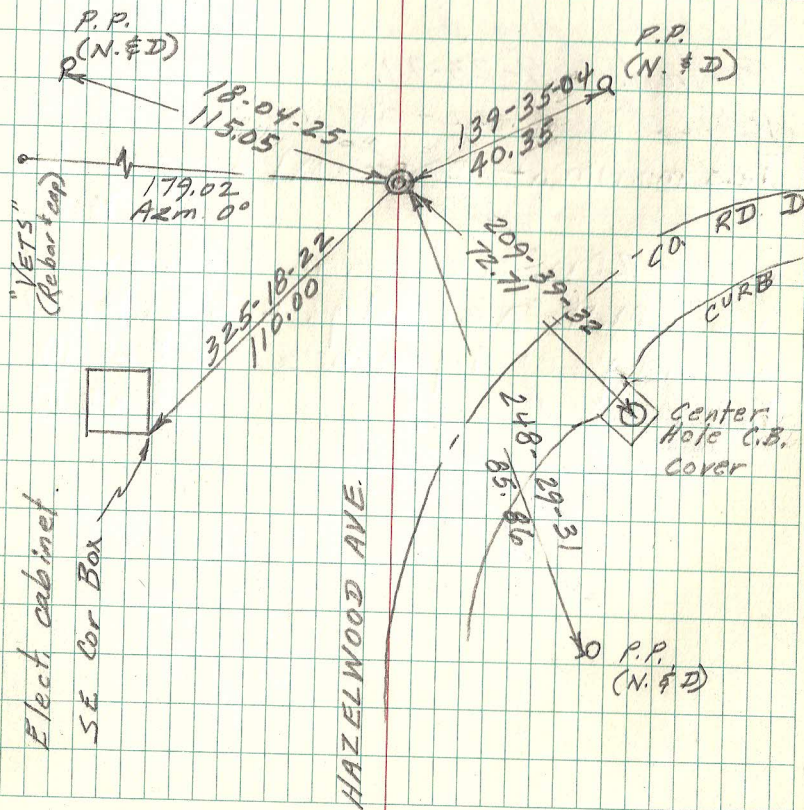 P.P.
(N. & D)
P.P.
(N. & D)
18-04-25
115.05
139-35-04
40.35
179.02
Azm 0°
"VETS"
(Rebar & cap)
209-39-32
72.71
CO. RD D
CURB
325-18-22
110.00
Center
Hole C.B.
Cover
248-29-31
85.86
Elect. cabinet
SE Cor Box
HAZELWOOD AVE.
P.P.
(N. & D)